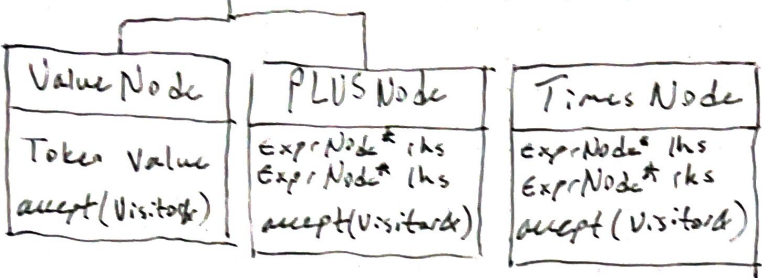 Value Node
Token value
accept(Visitor&)
PLUS Node
ExprNode* rhs
ExprNode* lhs
accept(Visitor&)
Times Node
ExprNode* lhs
ExprNode* rhs
accept(Visitor&)